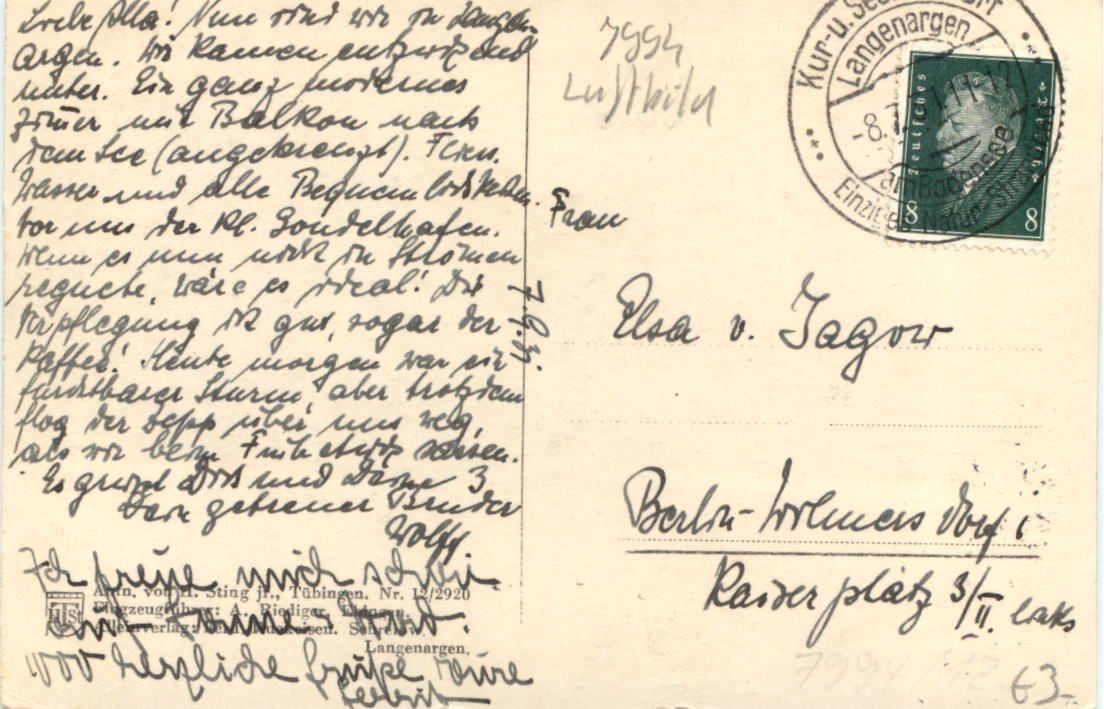 Liebe Illa! Nun sind wir in Langen-
argen. Wir kamen entzückend
unter. Ein ganz modernes
Zimmer mit Balkon nach
dem See (angekreuzt). Fliess.
Wasser und alle Bequemlichkeiten.
Vor uns der kl. Gondelhafen.
Wenn es nun nicht in Strömen
regnete, wäre es ideal! Die
Verpflegung ist gut, sogar der
Kaffee! Heute morgen war ein
furchtbarer Sturm aber trotzdem
flog der Zepp über uns weg,
als wir beim Frühstück sassen.
Es grüsst Dich und Deine 3
Dein getreuer Bruder
Wolff
Ich freue mich schon
1000 herzliche Grüße
7.9.31.
Aufn. von H. Sting jr., Tübingen, Nr. 12/2920
Flugzeugführer: A. Riediger, Ebingen.
Langenargen.
HTS
7994
Luftbild
Kur-u. Seebadeort
Langenargen
-8.
am Bodensee
Deutsches Reich
8 8
Frau
Elsa v. Jagow
Berlin-Wilmersdorf
Kaiserplatz 3/II. links
7994
63-